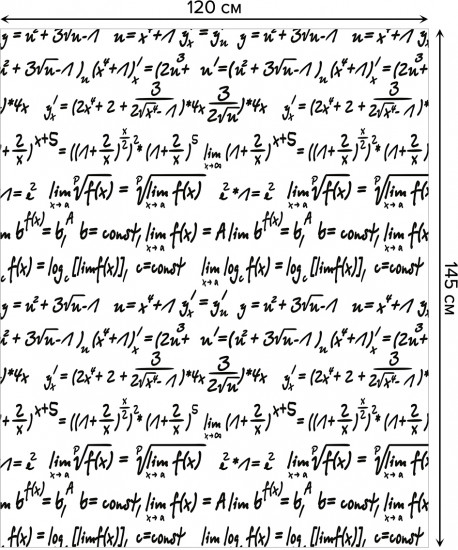 120 см
y = u² + 3√u-1 u = x⁴+1 y'ₓ = y'ᵤ y = u² + 3√u-1 u = x⁴+1 yₓ
i² + 3√u-1 )ᵤ (x⁴+1)'ₓ = (2u³+ u' = (u² + 3√u-1 )ᵤ (x⁴+1)'ₓ = (2u³+
)*4x y'ₓ = (2x⁴ + 2 + 3/(2√(x⁴-1)) )*4x 3/(2√u) )*4x y'ₓ = (2x⁴ + 2 + 3/(2√(x⁴-1)) )*
+ 2/x)^(x+5) = ((1 + 2/x)^(x/2))² * (1 + 2/x)⁵ lim x→∞ (1 + 2/x)^(x+5) = ((1 + 2/x)^(x/2))² * (1 + 2/x)
1 = e² lim x→a ᵖ√f(x) = ᵖ√lim x→a f(x) e² * 1 = e² lim x→a ᵖ√f(x) = ᵖ√lim x→a f(x
m b^f(x) = b^A, b = const, lim x→a f(x) = A lim b^f(x) = b^A, b = const, lim x→a f(x
c f(x) = log c [lim f(x)], c = const lim x→a log c f(x) = log c [lim f(x)], c = const
y = u² + 3√u-1 u = x⁴+1 y'ₓ = y'ᵤ y = u² + 3√u-1 u = x⁴+1 yₓ
i² + 3√u-1 )ᵤ (x⁴+1)'ₓ = (2u³+ u' = (u² + 3√u-1 )ᵤ (x⁴+1)'ₓ = (2u³+
)*4x y'ₓ = (2x⁴ + 2 + 3/(2√(x⁴-1)) )*4x 3/(2√u) )*4x y'ₓ = (2x⁴ + 2 + 3/(2√(x⁴-1)) )*
+ 2/x)^(x+5) = ((1 + 2/x)^(x/2))² * (1 + 2/x)⁵ lim x→∞ (1 + 2/x)^(x+5) = ((1 + 2/x)^(x/2))² * (1 + 2/x)
1 = e² lim x→a ᵖ√f(x) = ᵖ√lim x→a f(x) e² * 1 = e² lim x→a ᵖ√f(x) = ᵖ√lim x→a f(x
m b^f(x) = b^A, b = const, lim x→a f(x) = A lim b^f(x) = b^A, b = const, lim x→a f(x
c f(x) = log c [lim f(x)], c = const lim log c f(x) = log c [lim f(x)], c = const
145 см